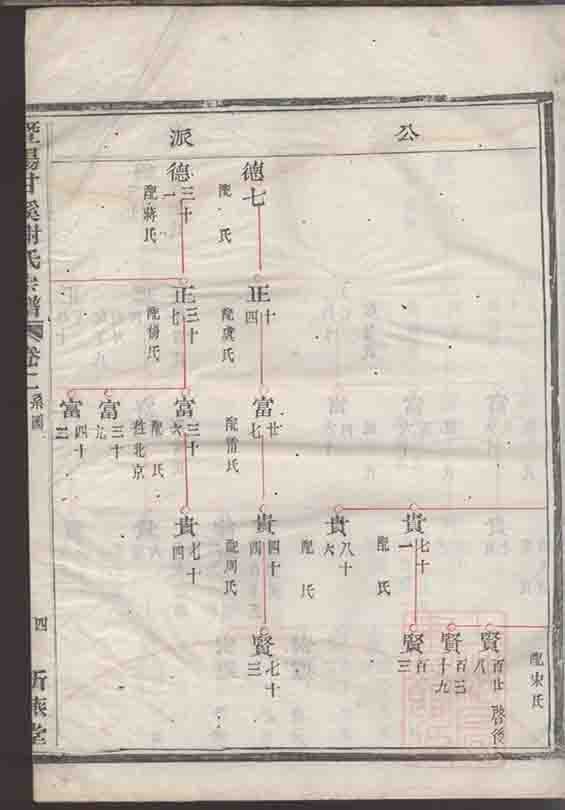 公
派
德七
配 氏
德三十一
配蔣氏
正十四
配虞氏
正三十七
配楊氏
富廿七
配 氏
富三十六
配 氏
往北京
富三十九
富四十三
貴七十一
配 氏
貴八十六
配 氏
貴四十四
配周氏
貴七十四
賢百廿八
啓後
賢百三十九
賢百三
賢七十三
暨陽甘溪謝氏宗譜
系圖
四
堂